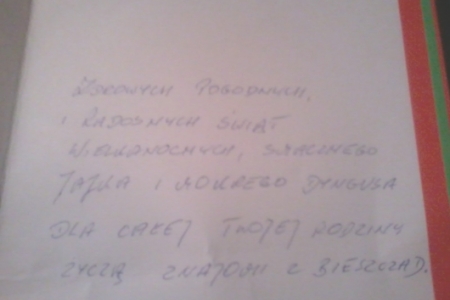 ZDROWYCH POGODNYCH,
I RADOSNYCH ŚWIĄT
WIELKANOCNYCH, SMACZNEGO
JAJKA I MOKREGO DYNGUSA
DLA CAŁEJ TWOJEJ RODZINY
ŻYCZĄ ZNAJOMI Z BIESZCZAD.